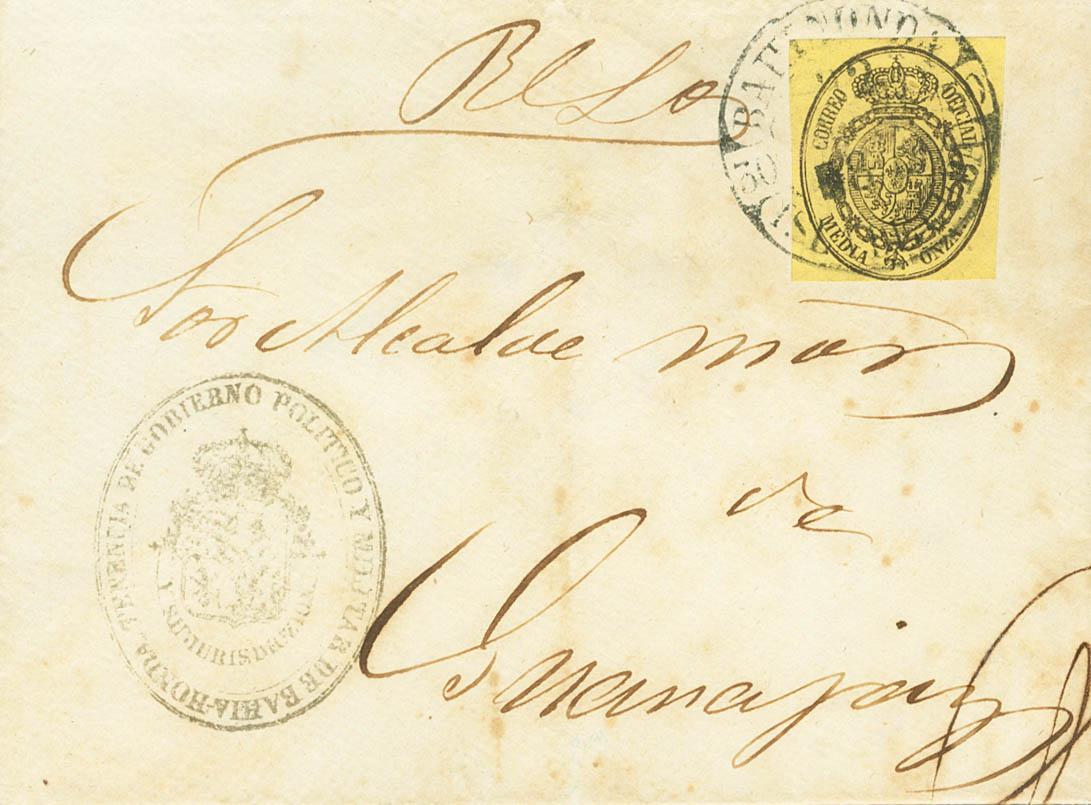 Rl So
BAHIA HONDA
CORREO OFICIAL
MEDIA ONZA
Sor Alcalde mor
de
Guanajay
TENENCIA DE GOBIERNO POLITICO Y MILITAR DE BAHIA-HONDA.
Y SU JURISDICCION